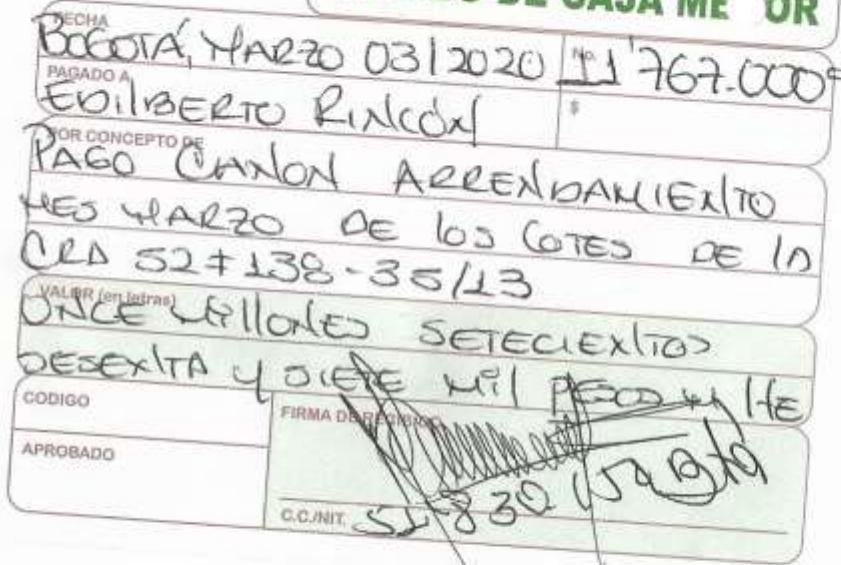 DE CAJA ME OR
FECHA
BOGOTÁ, MARZO 03/2020 No. 11'767.000
PAGADO A
EDILBERTO RINCÓN $
POR CONCEPTO DE
PAGO CANON ARRENDAMIENTO
MES MARZO DE LOS LOTES DE LA
CRA 52 # 138-35/13
VALOR (en letras)
ONCE MILLONES SETECIENTOS
SESENTA Y SIETE MIL PESOS M/TE
CODIGO
FIRMA DE RECIBIDO
APROBADO
C.C./NIT.